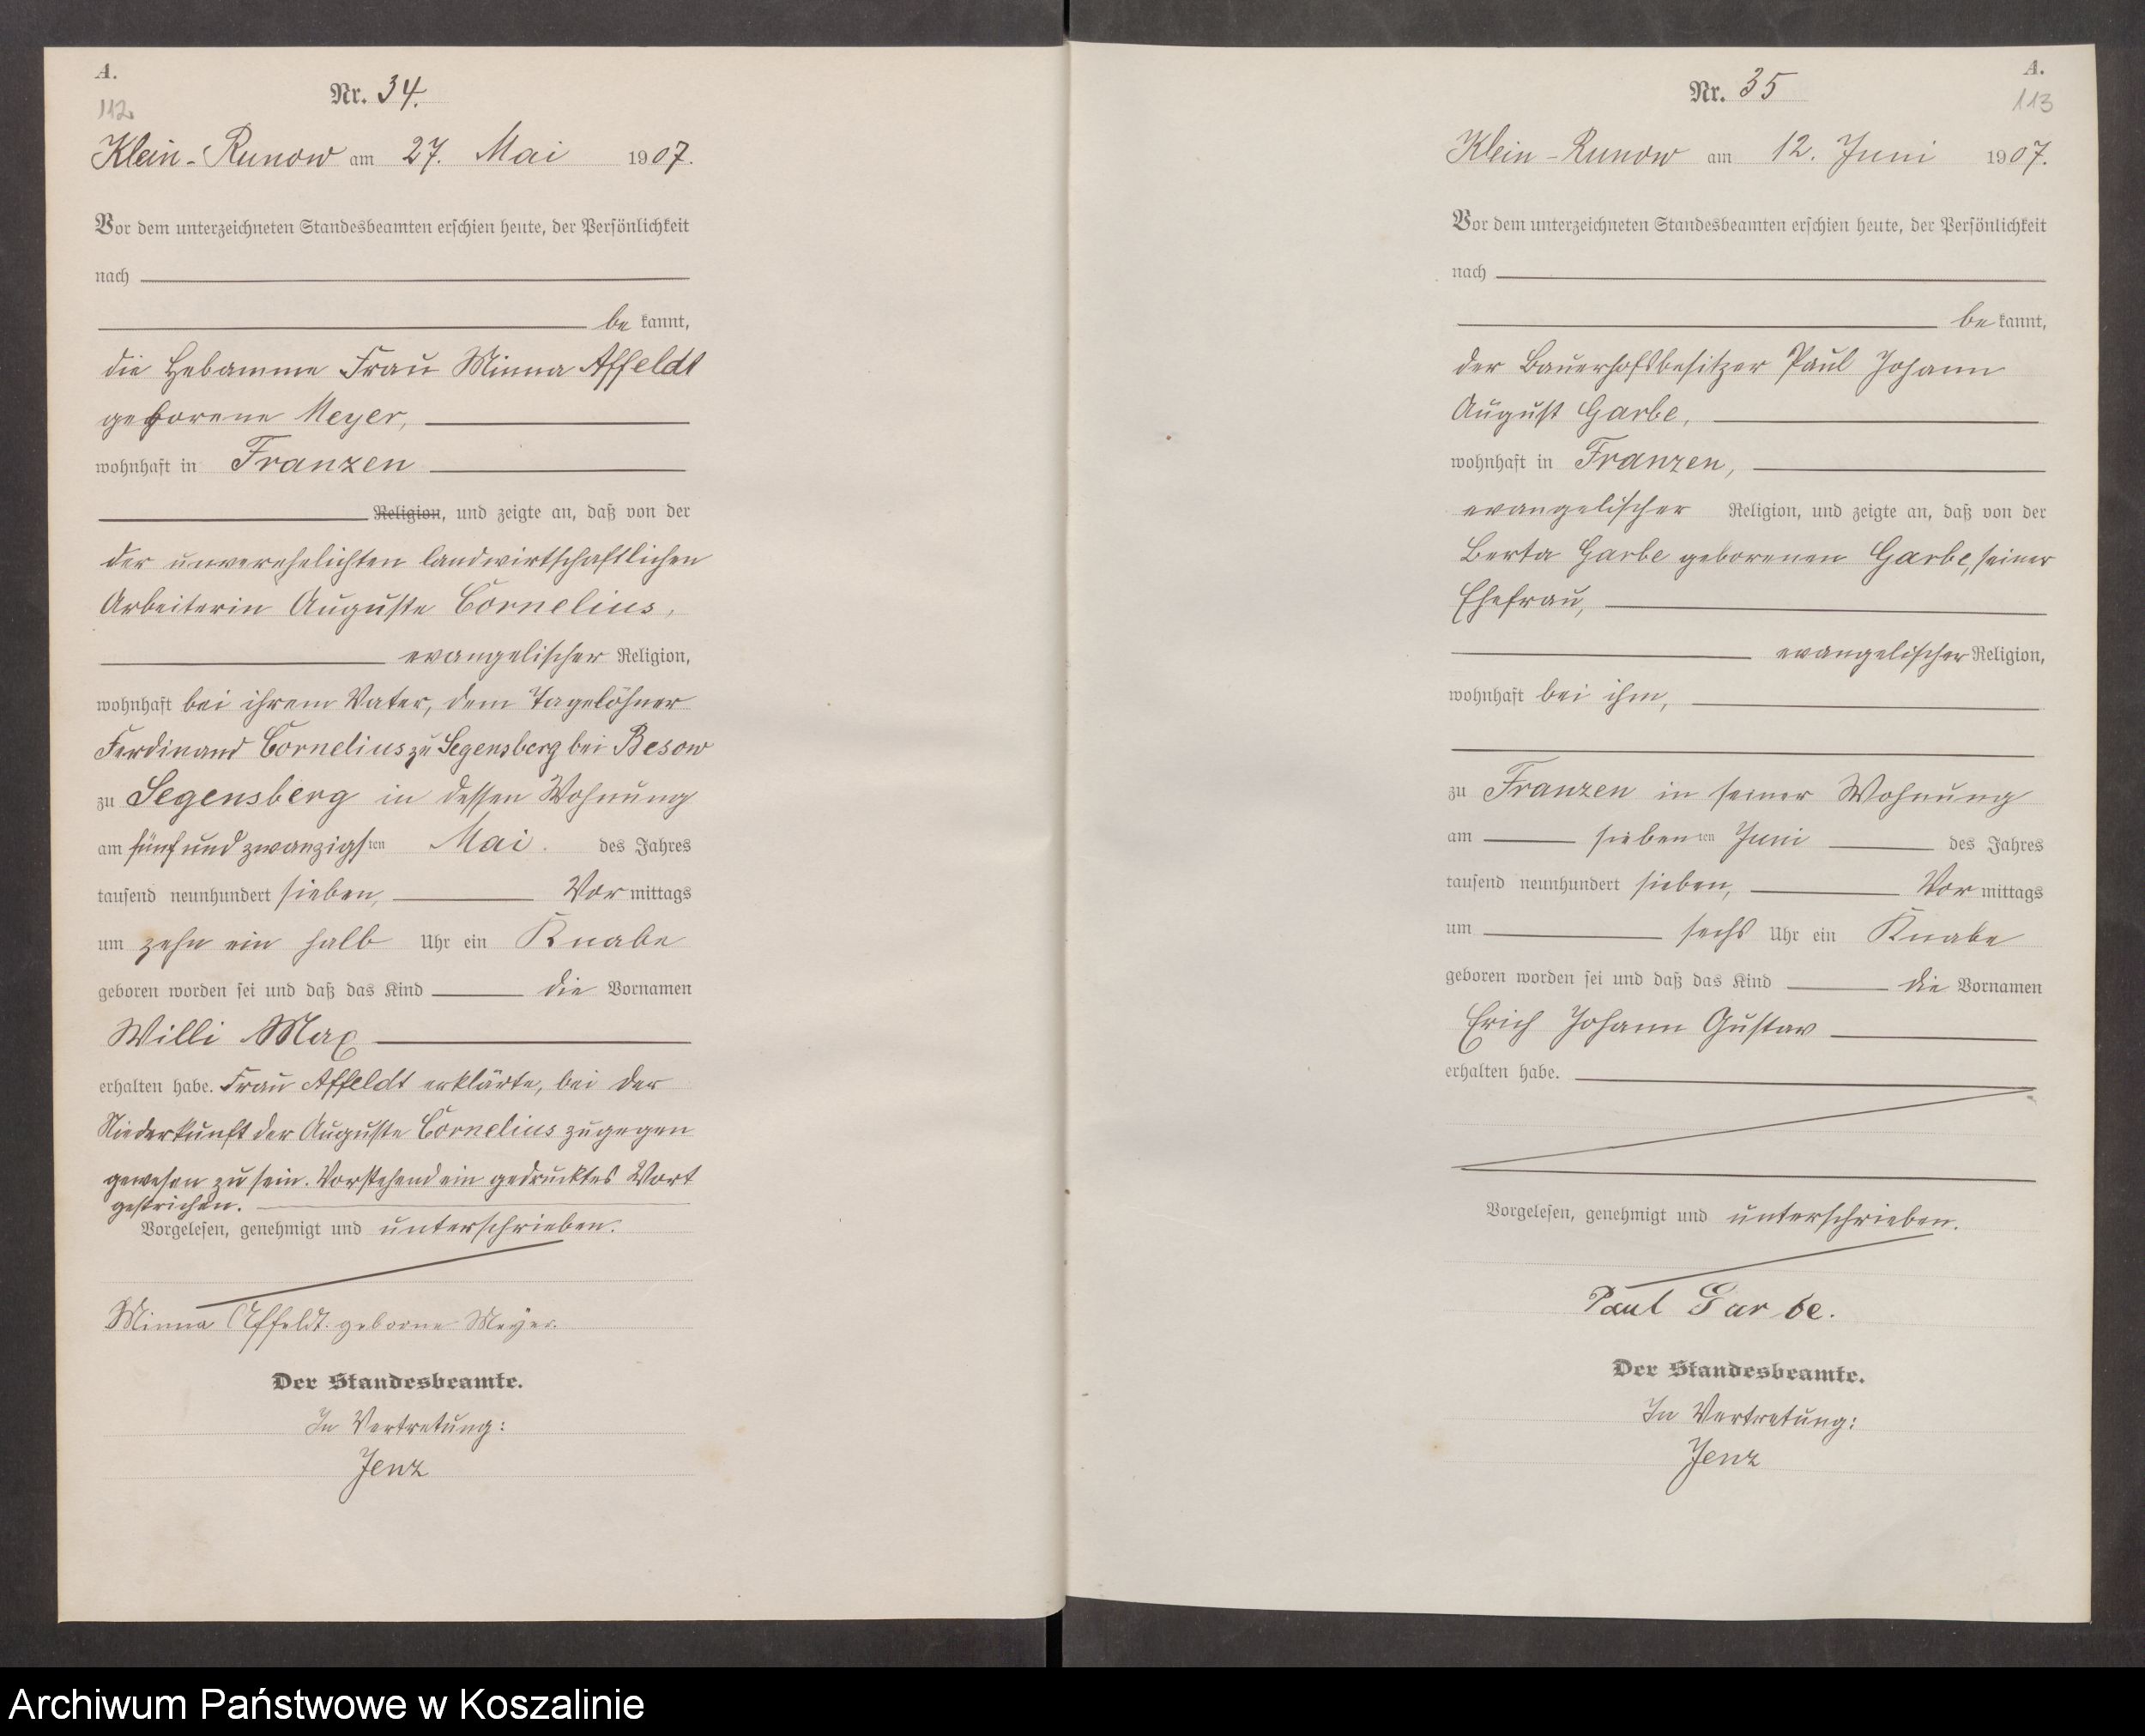 A.
112
Nr. 34.
Klein-Runow am 27. Mai 1907.
Vor dem unterzeichneten Standesbeamten erschien heute, der Persönlichkeit
nach
be kannt,
die Hebamme Frau Minna Affeldt
geborene Meyer,
wohnhaft in Franzen
Religion, und zeigte an, daß von der
der unverehelichten landwirtschaftlichen
Arbeiterin Auguste Cornelius,
evangelischer Religion,
wohnhaft bei ihrem Vater, dem Tagelöhner
Ferdinand Cornelius zu Segensberg bei Besow
zu Segensberg in dessen Wohnung
am fünf und zwanzigsten Mai. des Jahres
tausend neunhundert sieben, Vor mittags
um zehn ein halb Uhr ein Knabe
geboren worden sei und daß das Kind die Vornamen
Willi Max
erhalten habe. Frau Affeldt erklärte, bei der
Niederkunft der Auguste Cornelius zugegen
gewesen zu sein. Vorstehend ein gedrucktes Wort
gestrichen.
Vorgelesen, genehmigt und unterschrieben.
Minna Affeldt. geborne Meyer.
Der Standesbeamte.
In Vertretung:
Jenz
A.
113
Nr. 35
Klein-Runow am 12. Juni 1907.
Vor dem unterzeichneten Standesbeamten erschien heute, der Persönlichkeit
nach
be kannt,
der Bauerhofsbesitzer Paul Johann
August Garbe,
wohnhaft in Franzen,
evangelischer Religion, und zeigte an, daß von der
Berta Garbe geborenen Garbe, seiner
Ehefrau,
evangelischer Religion,
wohnhaft bei ihm,
zu Franzen in seiner Wohnung
am siebenten Juni des Jahres
tausend neunhundert sieben, Vor mittags
um sechs Uhr ein Knabe
geboren worden sei und daß das Kind die Vornamen
Erich Johann Gustav
erhalten habe.
Vorgelesen, genehmigt und unterschrieben.
Paul Garbe.
Der Standesbeamte.
In Vertretung:
Jenz
Archiwum Państwowe w Koszalinie